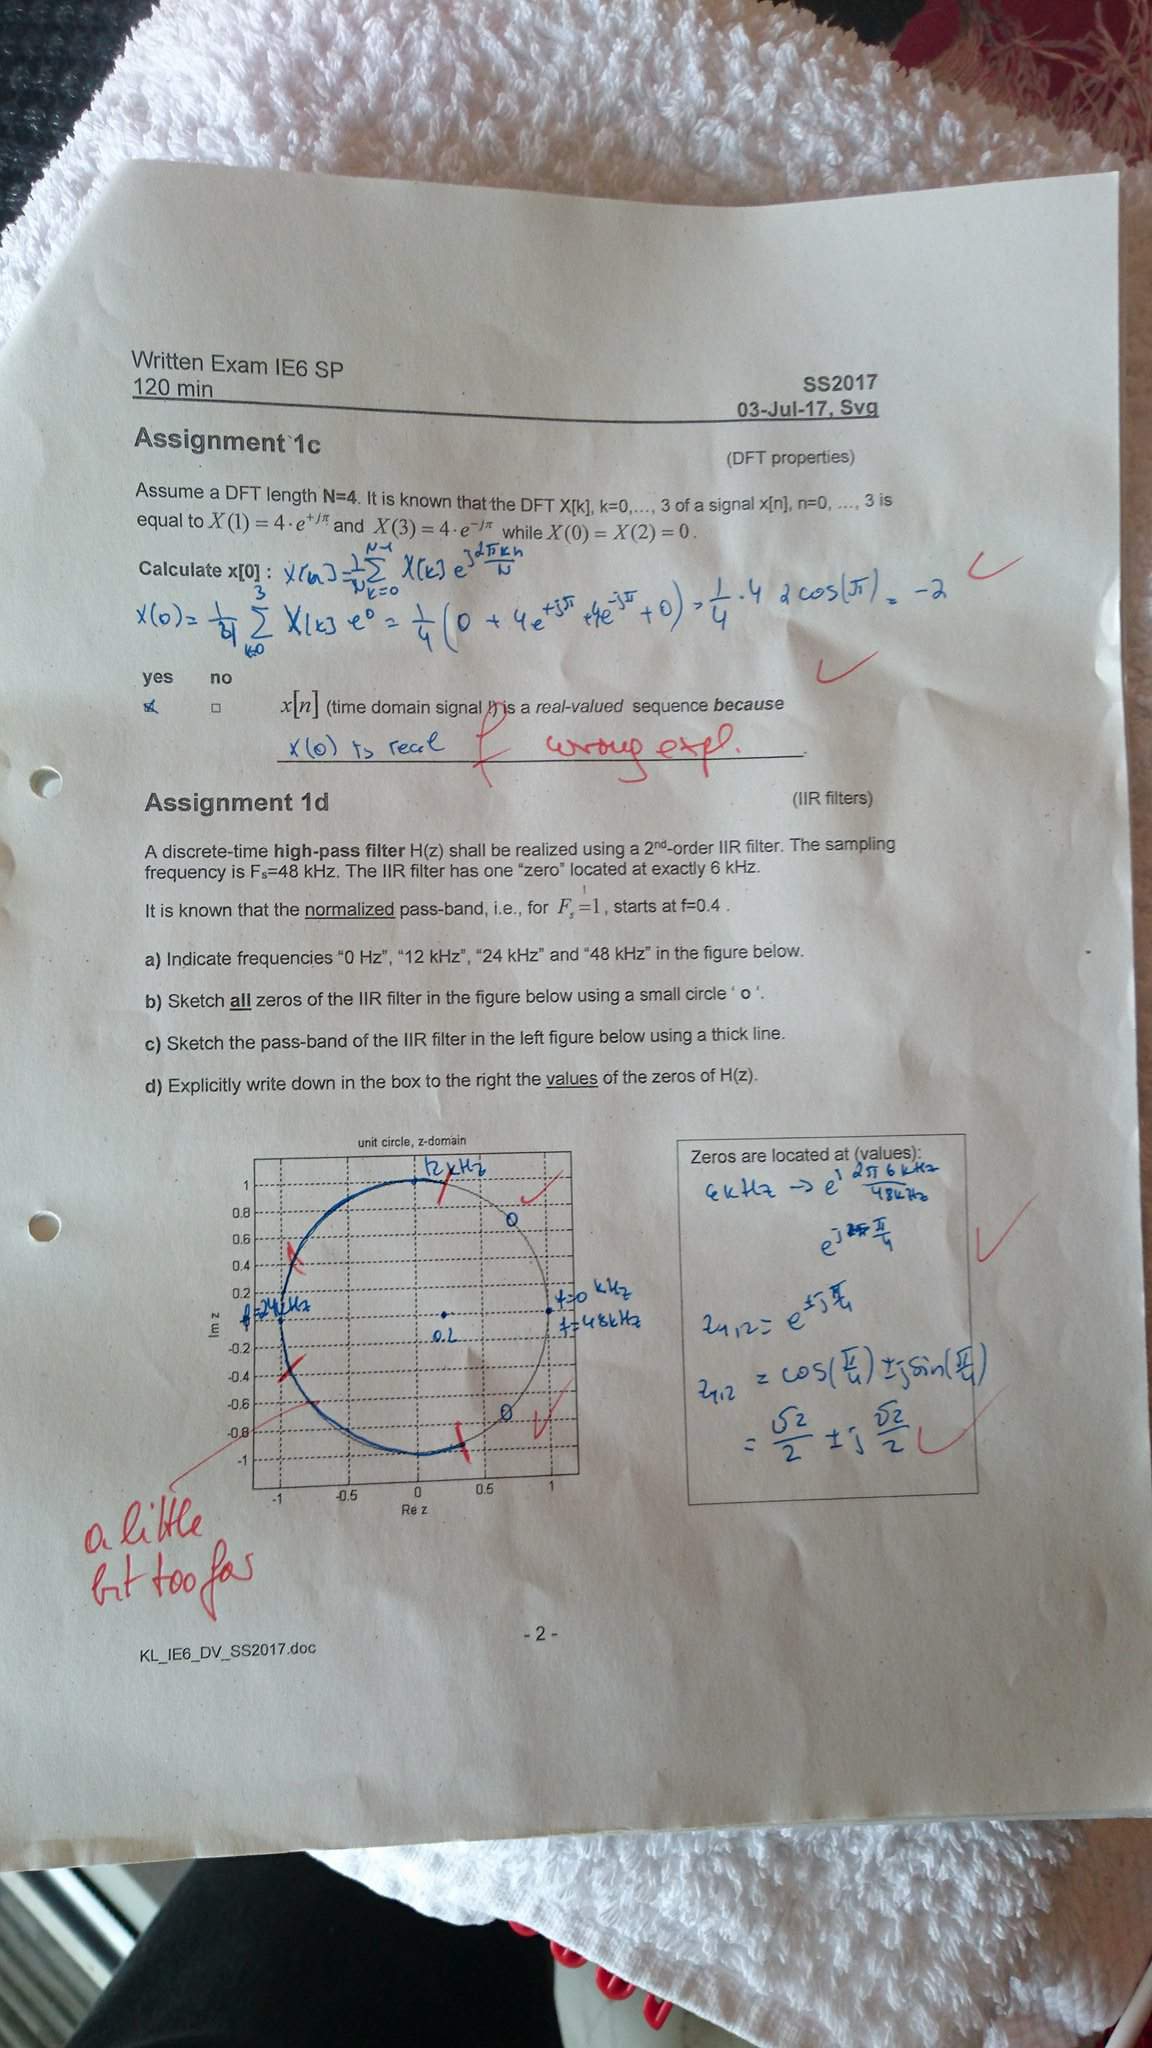 Written Exam IE6 SP
120 min
SS2017
03-Jul-17, Svg
Assignment 1c
(DFT properties)
Assume a DFT length N=4. It is known that the DFT X[k], k=0,..., 3 of a signal x[n], n=0, ..., 3 is
equal to X(1) = 4·e^{+jπ} and X(3) = 4·e^{-jπ} while X(0) = X(2) = 0.
Calculate x[0] : x[n] = 1/N Σ_{k=0}^{N-1} X[k] e^{j 2πkn/N}
x(0) = 1/4 Σ_{k=0}^{3} X[k] e^0 = 1/4 (0 + 4e^{+jπ} + 4e^{-jπ} + 0) = 1/4 · 4 2cos(π) = -2
yes no
x[n] (time domain signal !) is a real-valued sequence because
x(0) is real f wrong expl.
Assignment 1d
(IIR filters)
A discrete-time high-pass filter H(z) shall be realized using a 2nd-order IIR filter. The sampling
frequency is Fs=48 kHz. The IIR filter has one "zero" located at exactly 6 kHz.
It is known that the normalized pass-band, i.e., for F_s =! 1, starts at f=0.4 .
a) Indicate frequencies "0 Hz", "12 kHz", "24 kHz" and "48 kHz" in the figure below.
b) Sketch all zeros of the IIR filter in the figure below using a small circle ' o '.
c) Sketch the pass-band of the IIR filter in the left figure below using a thick line.
d) Explicitly write down in the box to the right the values of the zeros of H(z).
unit circle, z-domain
12 kHz
1
0.8
0.6
0.4
0.2
f=24kHz
-0.2
-0.4
-0.6
-0.8
-1
Im z
f=0 kHz
f=48kHz
0.2
-1 -0.5 0 0.5 1
Re z
Zeros are located at (values):
6kHz → e^{j 2π 6 kHz/48kHz}
e^{j π/4}
z_{1,2} = e^{±j π/4}
z_{1,2} = cos(π/4) ± j sin(π/4)
= √2/2 ± j √2/2
a little
bit too far
- 2 -
KL_IE6_DV_SS2017.doc